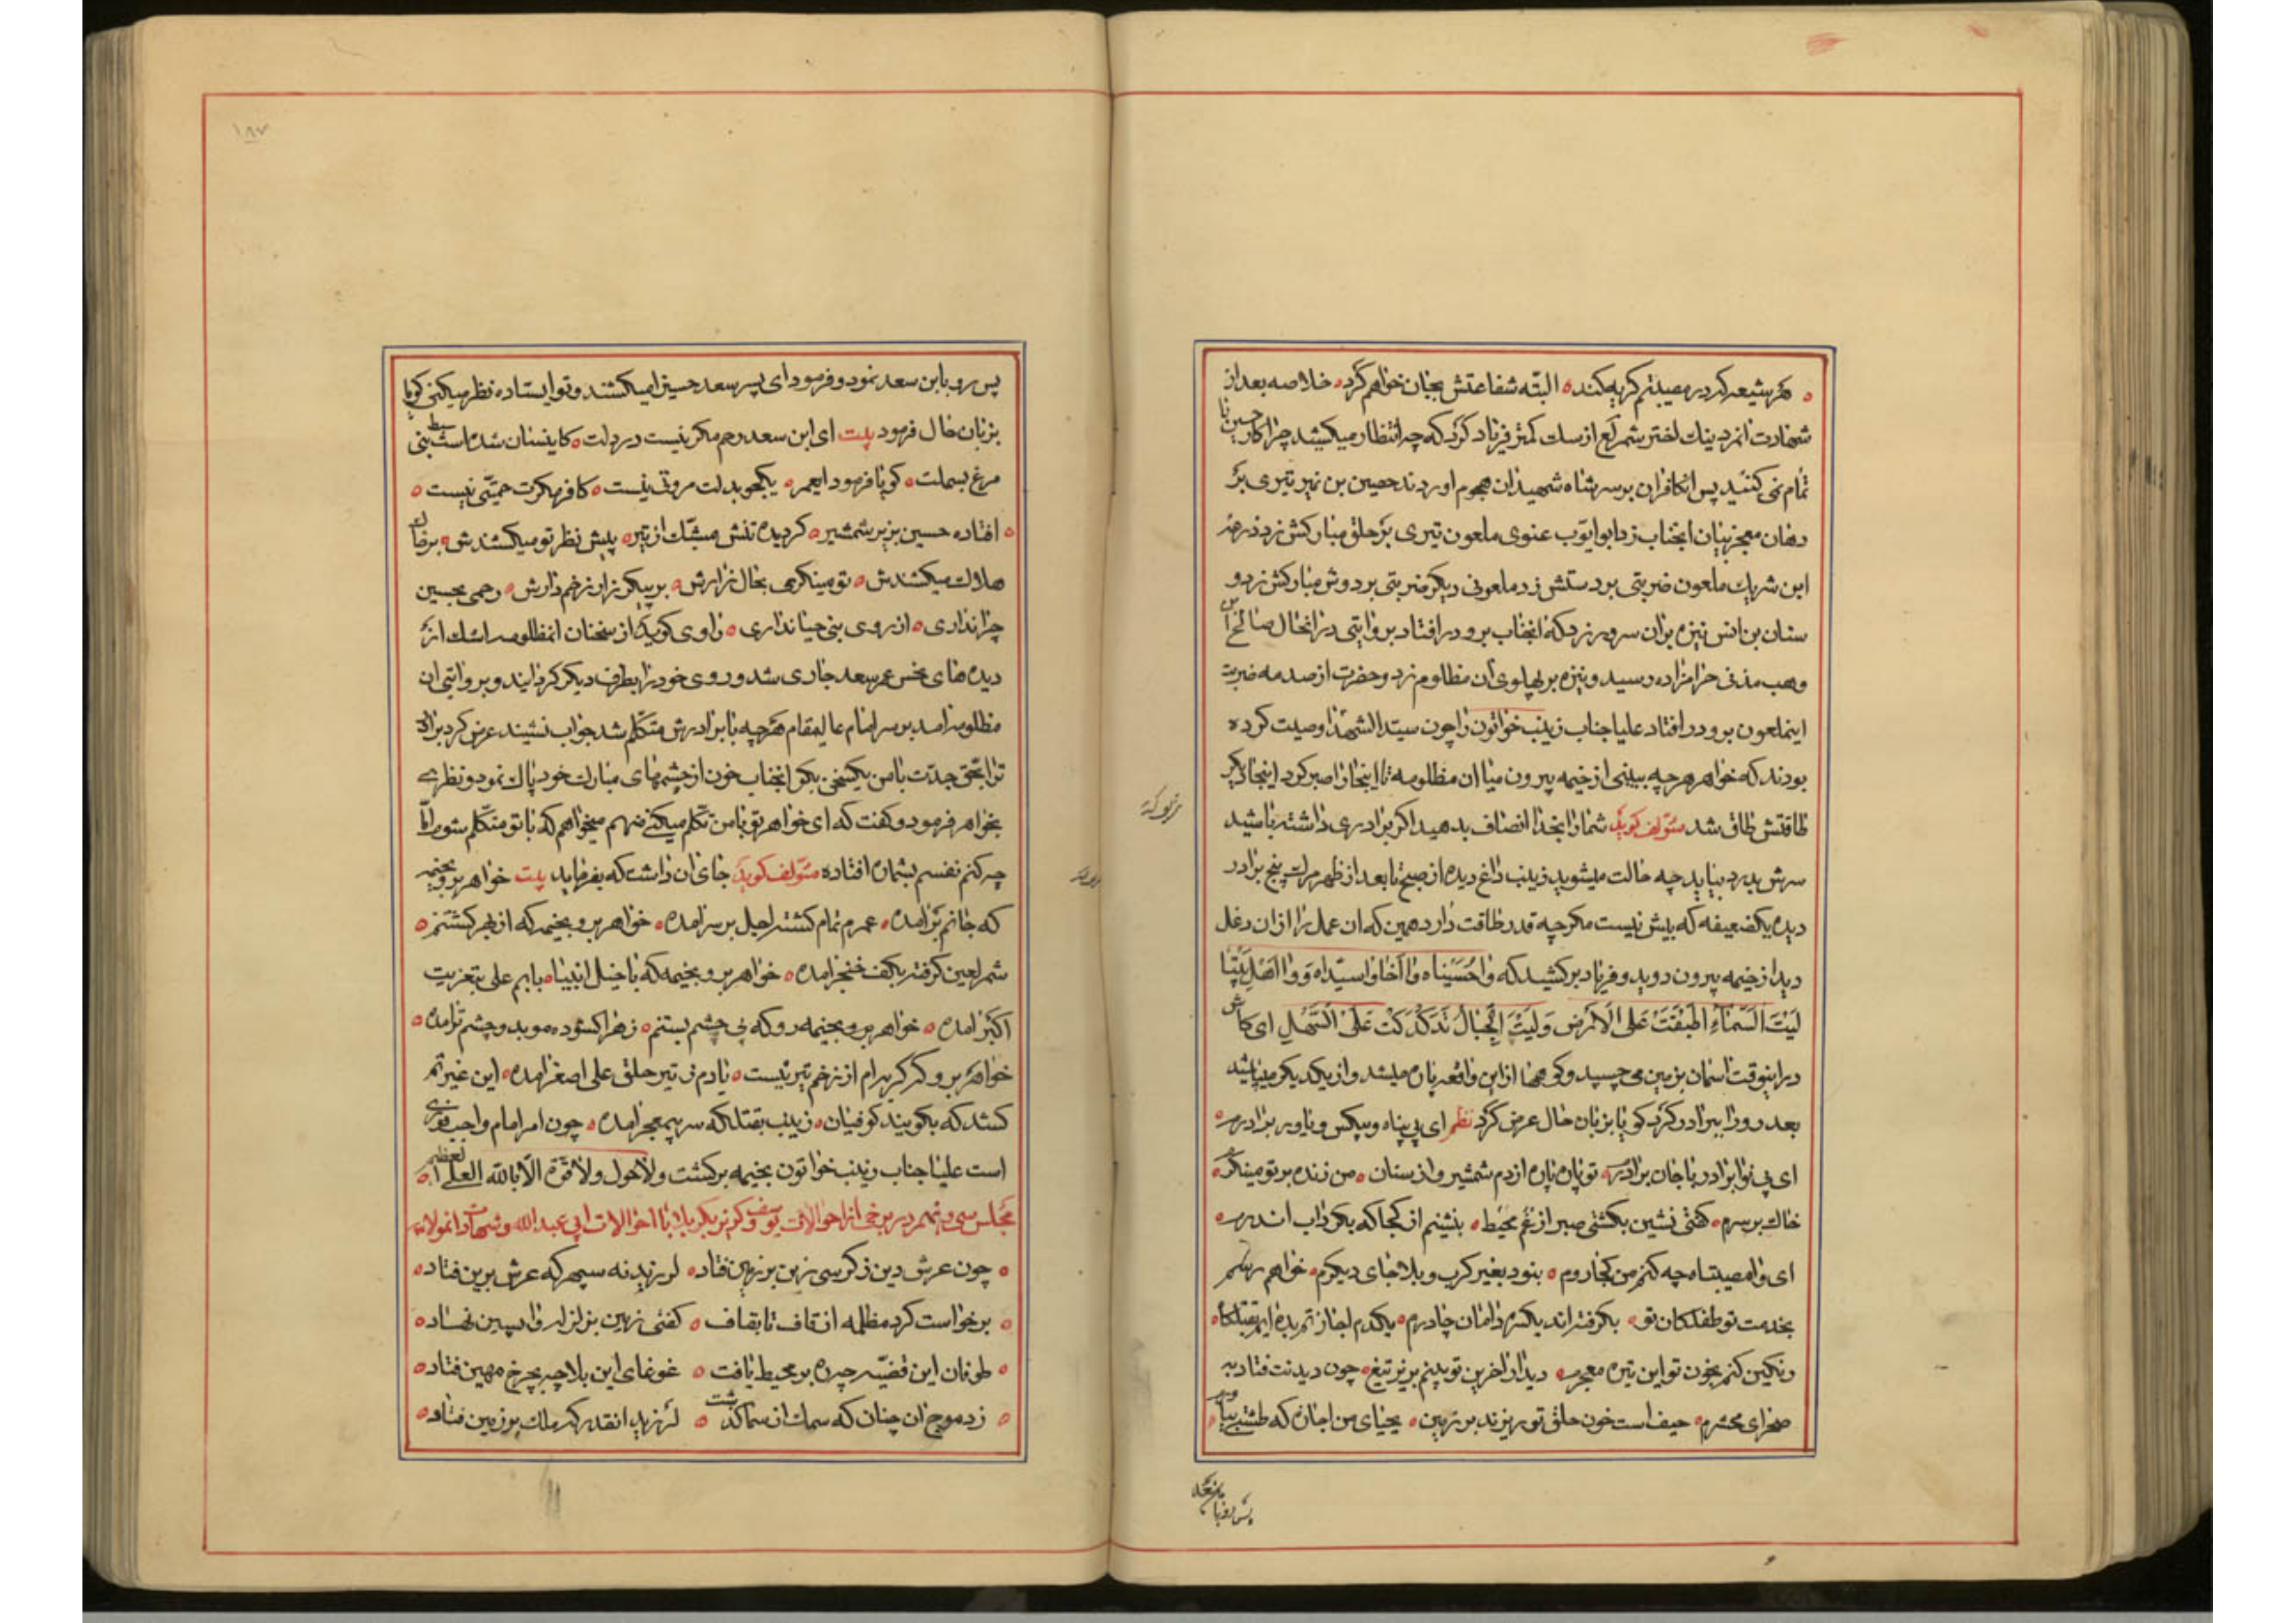 هر شیعه که در مصیبتم گریه کند البته شفاعتش بجان خواهم کرد خلاصه بعد از
شهادت نزدیک اختر شمر از سک کمتر فریاد کرد که چه انتظار میکشید چرا کار حسین را
تمام نمی کنید پس انکافران بر سر شاه شهیدان هجوم اوردند حصین بن نمیر تیری بر
دهان معجز بیان انجناب زد ابو ایوب غنوی ملعون تیری بر حلق مبارکش زد ذرعه
ابن شریک ملعون ضربتی بر دستش زد ملعونی دیگر ضربتی بر دوش مبارکش زد و
سنان بن انس نیزه بران سرور زد که انجناب برو در افتاد بروایتی در انحال صالح ابن
وهب مزنی حرامزاده رسید و نیزه بر پهلوی ان مظلوم زد و حضرت از صدمه ضربت
اینملعون برو در افتاد علیا جناب زینب خواتون را چون سید الشهدا وصیت کرده
بودند که خواهر هر چه ببینی از خیمه بیرون میا ان مظلومه تا اینجا را صبر کرد اینجا دیگر
طاقتش طاق شد مؤلف گوید شما را بخدا انصاف بدهید اگر برادری داشته باشید
سرش بدرد بیاید چه حالت میشوید زینب داغ دیده از صبح تا بعد از ظهر مرک پنج برادر
دیده یکضعیفه که بیش نیست مگر چه قدر طاقت دارد همین که ان عمل را از ان دغل
دید از خیمه بیرون دوید و فریاد برکشید که واحسیناه وا اخا وا سیداه و وا اهل بیتا
لیت السماء اطبقت علی الارض و لیت الجبال تدکدکت علی السهل ای کاش
در اینوقت اسمان بزمین می چسپید و کوهها از این واقعه پاره میشد و از یکدیگر میپاشید
بعد رو را ببرادر کرد گویا بزبان حال عرض کرد نظم ای بی پناه و بیکس و یاور برادرم
ای بی نوا برادر با جان برابرم تو پاره پاره از دم شمشیر و از سنان من زنده بر تو مینگرم
خاک بر سرم کفتی نشین بکشتی صبر از غم محیط بنشینم از کجا که بگرداب اندرم
ای وا مصیبتاه چه کنم من کجا روم بنود بغیر کرب و بلا جای دیگرم خواهم رسم
بخدمت تو طفلکان تو بگرفته اند یکسره دامان چادرم یکدم اجازتم بده
رنگین کنم بخون تو این تیره معجرم دیدار اخرین تو بینم بزیر تیغ چون دیدنت فتاد به
صحرای محشرم حیف است خون حلق تو ریزند بر زمین یحیای من اجازه که طشتی بیاورم
پس رو بابن سعد
پس رو بابن سعد نمود و فرمود ای پسر سعد حسین را میکشند و تو ایستاده نظر میکنی گویا
بزبان حال فرمود بیت ای ابن سعد رحم مگر نیست در دلت کاینسان شده است سبط نبی
مرغ بسملت گویا فرمود ایعمر یکجو بدلت مروتی نیست کافر مکرت حمیتی نیست
افتاده حسین بزیر شمشیر گردیده تنش مشبک از تیر پیش نظر تو میکشندش
هلاک میکشندش تو مینگری بحال زارش بر پیکر زار زخم دارش رحمی بحسین
چرا نداری از روی نبی حیا نداری راوی گوید از سخنان انمظلومه اشک از
دیده های نحس عمر سعد جاری شد و روی خود را بطرف دیگر گردانید و بروایتی ان
مظلومه امد بر سر امام عالیمقام هر چه با برادرش متکلم شد جواب نشنید عرض کرد برادر
ترا بحق جدت با من یکسخن بگو انجناب خون از چشمهای مبارک خود پاک نمود و نظری
بخواهر فرمود و گفت که ای خواهر تو با من تکلم میکنی منهم میخواهم که با تو متکلم شوم اما
چه کنم نفسم بشماره افتاده مؤلف گوید جای ان داشت که بفرماید بیت خواهر برو بخیمه
که جانم بر امده عمرم تمام گشته اجل بر سر امده خواهر برو بخیمه که از بهر کشتنم
شمر لعین گرفته بکف خنجر امده خواهر برو بخیمه که با خیل انبیا بابم علی بتعزیت
اکبر امده خواهر برو بخیمه رو که نی چشم بستنم زهرا گشوده موید و چشم تر امده
خواهر برو که گریه ام از زخم تیر نیست یادم ز تیر حلق علی اصغر امده این غیرتم
کشد که بگویند کوفیان زینب بقتلگه سر بیمعجر امده چون امر امام واجب
است علیا جناب زینب خواتون بخیمه برگشت ولا حول ولا قوة الا بالله العلی العظیم
مجلس سی و نهم در برخی از احوالات یوسف و گریز بکربلا با احوالات ابی عبدالله و شهادت انمولاء
چون عرش دین ز کرسی زین بر زمین فتاد لرزید نه سپهر که عرش برین فتاد
برخواست گرد مظلمه از قاف تا بقاف کفتی زمین بزلزله واپسین فتاد
طوفان این قضیه چه بر محیط یافت غوغای این بلا چه بچرخ مهین فتاد
زد موج ان چنان که سمک از سما گذشت لرزید انقدر که ملک بر زمین فتاد
۱۸۷